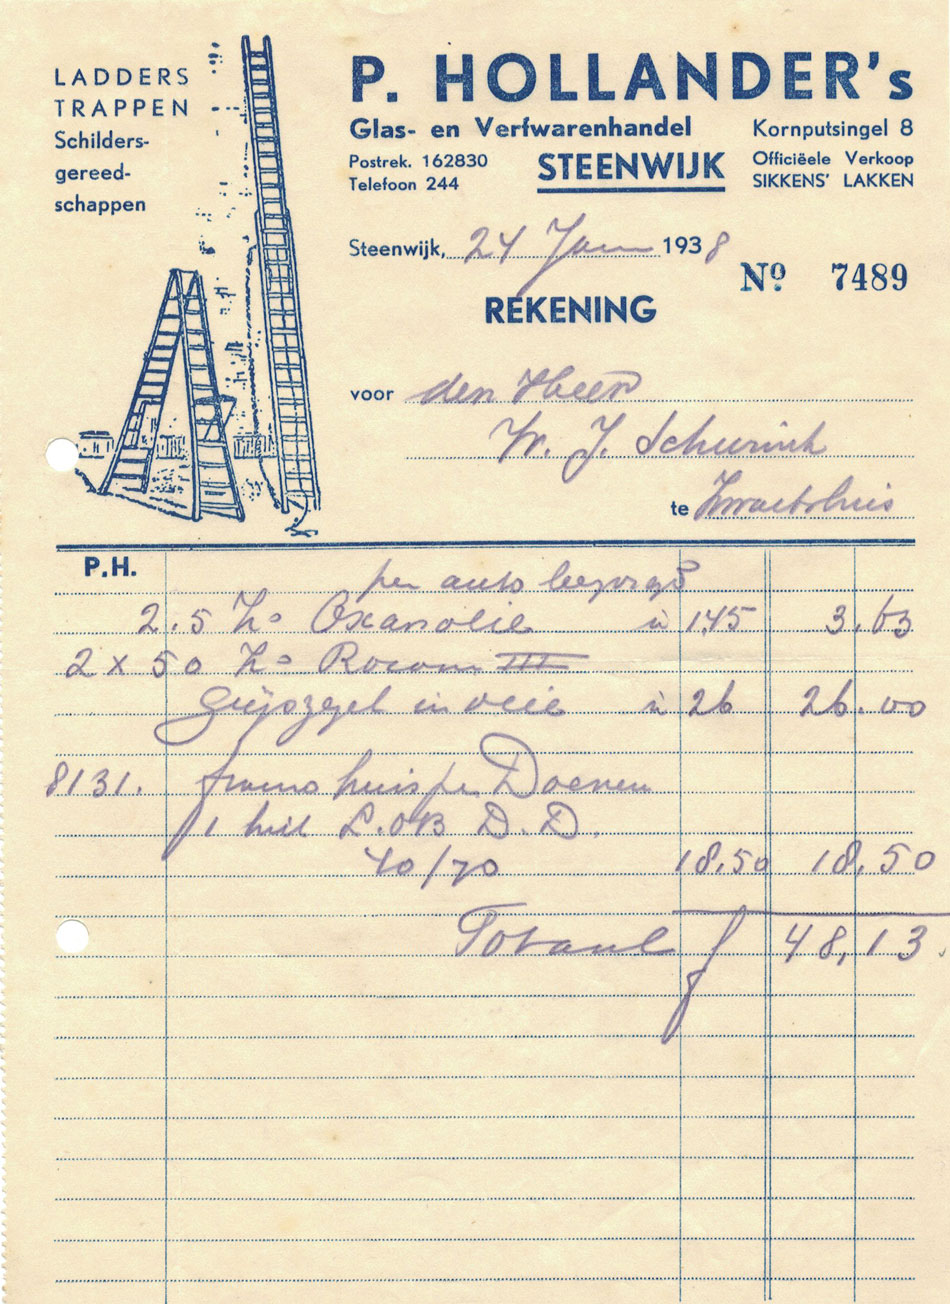 LADDERS
TRAPPEN
Schilders-
gereed-
schappen
P. HOLLANDER's
Glas- en Verfwarenhandel
Kornputsingel 8
Postrek. 162830
Telefoon 244
STEENWIJK
Officiëele Verkoop
SIKKENS' LAKKEN
Steenwijk, 24 Jan 1938
Nº 7489
REKENING
voor den Heer
W. J. Schurink
te
P.H.
per auto bezorgd
2.5 Ko Oxanolie à 1.45 3.63
2 x 50 Ko III
Grijszegel in olie à 26 26.00
8131. franco huis per
1 L.OB D.D.
40/70 18.50 18.50
Totaal f 48,13.